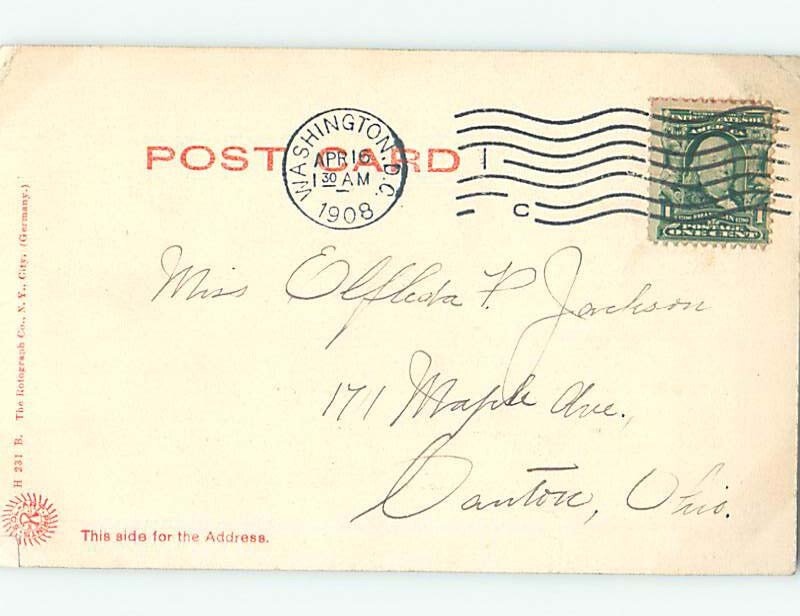 POST CARD
WASHINGTON, D.C.
APR 16
1 30 AM
1908
1
C
UNITED STATES OF
AMERICA
1 1
POSTAGE
ONE CENT
Miss Elfleda P. Jackson
171 Maple Ave.,
Canton, Ohio.
H 231 B. The Rotograph Co., N. Y., City. (Germany.)
This side for the Address.